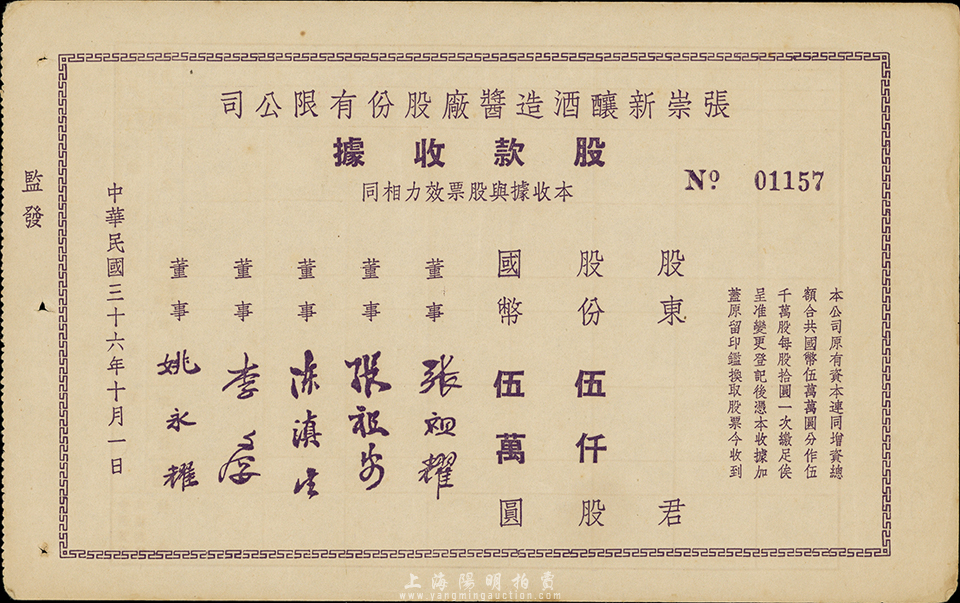 張崇新釀酒造醬廠股份有限公司
股款收據
本收據與股票效力相同
Nº 01157
本公司原有資本連同增資總
額合共國幣伍萬萬圓分作伍
千萬股每股拾圓一次繳足俟
呈准變更登記後憑本收據加
蓋原留印鑑換取股票今收到
股東 君
股份伍仟股
國幣伍萬圓
董事 張祖耀
董事 張祖
董事 陳滇
董事 李
董事 姚永耀
中華民國三十六年十月一日
監發
上海陽明拍賣
www.yangmingauction.com